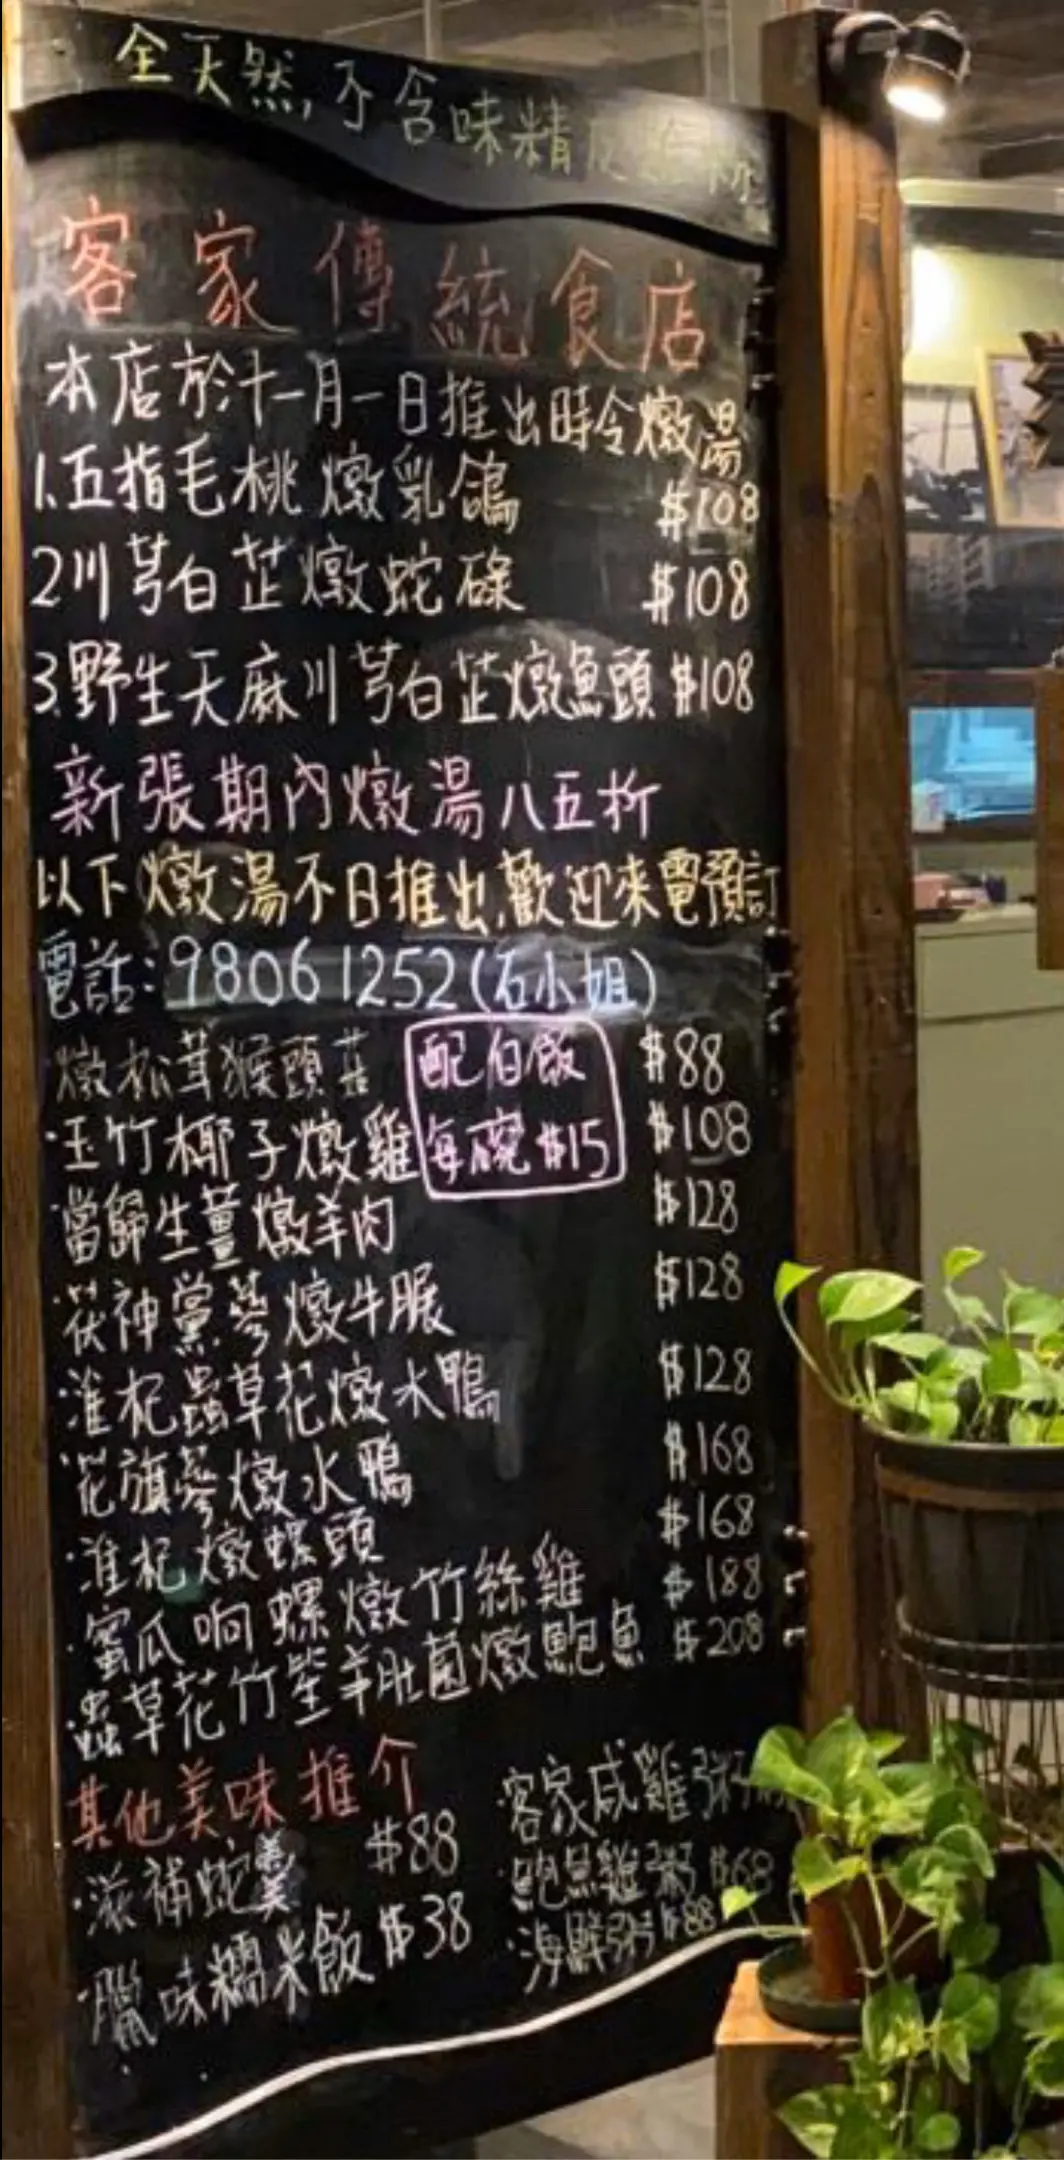 全天然,不含味精及雞粉
客家傳統食店
本店於十一月一日推出時令燉湯
1.五指毛桃燉乳鴿 $108
2川芎白芷燉蛇碌 $108
3.野生天麻川芎白芷燉魚頭 $108
新張期內燉湯八五折
以下燉湯不日推出,歡迎來電預訂
電話:98061252(石小姐)
燉松茸猴頭菇 $88
·玉竹椰子燉雞 $108
配白飯
每碗$15
·當歸生薑燉羊肉 $128
·茯神黨蔘燉牛𦟌 $128
·淮杞蟲草花燉水鴨 $128
·花旗蔘燉水鴨 $168
·淮杞燉螺頭 $168
·蜜瓜响螺燉竹絲雞 $188
·蟲草花竹笙羊肚菌燉鮑魚 $208
其他美味推介
·滋補蛇羹 $88
·臘味糯米飯 $38
·客家咸雞粥
·鮑魚雞粥 $68
·海鮮粥 $88